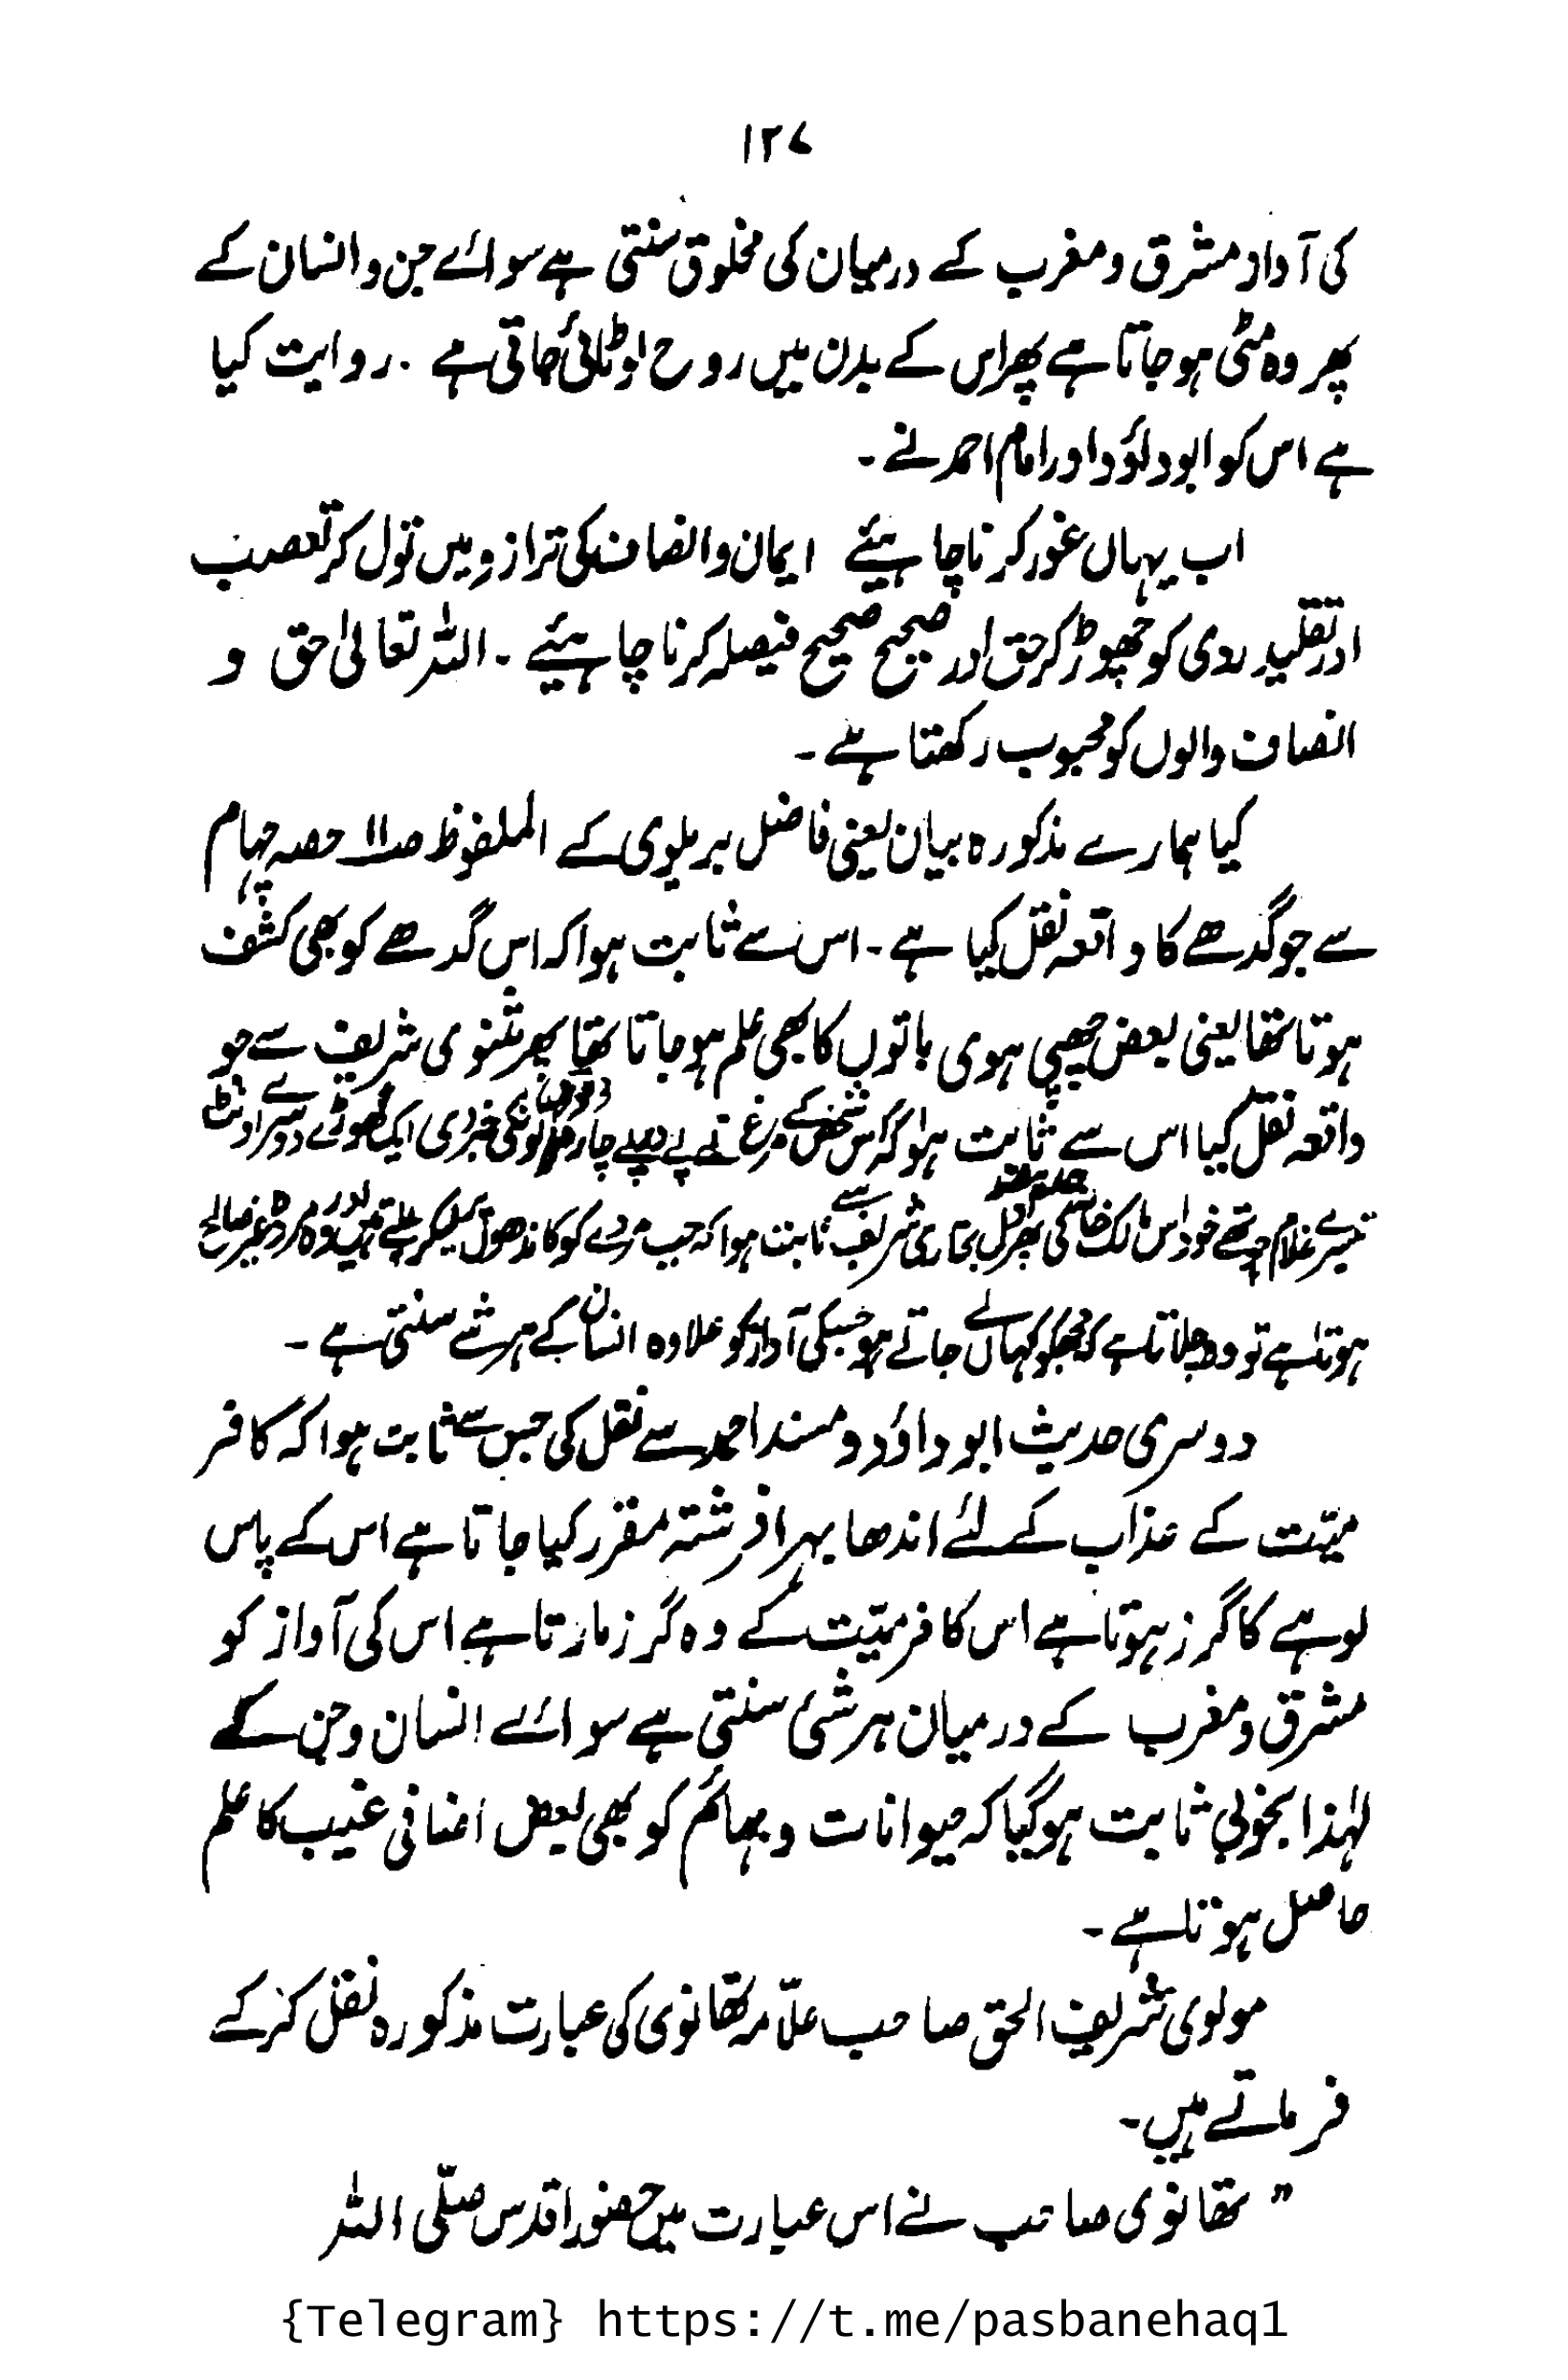 ۱۲۷
کی آواز مشرق و مغرب کے درمیان کی مخلوق سنتی ہے سوائے جن و انسان کے
پھر وہ مٹی ہو جاتا ہے پھر اس کے بدن میں روح لوٹائی جاتی ہے ۔ روایت کیا
ہے اس کو ابو داؤد اور امام احمد نے ۔
اب یہاں غور کرنا چاہیئے ایمان و انصاف کی ترازو میں تول کر تعصب
اور تقلید ردی کو چھوڑ کر حق اور صحیح صحیح فیصلہ کرنا چاہیئے ۔ اللہ تعالیٰ حق و
انصاف والوں کو محبوب رکھتا ہے ۔
کیا ہمارے مذکورہ بیان یعنی فاضل بریلوی کے الملفوظ صلا حصہ چہام
سے جو گدھے کا واقعہ نقل کیا ہے ۔ اس سے ثابت ہوا کہ اس گدھے کو بھی کشف
ہوتا تھا یعنی بعض چھپی ہوی باتوں کا بھی علم ہو جاتا تھا پھر مثنوی شریف سے جو
واقعہ نقل کیا اس سے ثابت ہوا کہ اس شخص کے مرغ نے پے درپے چار کی خبر دی ایک گھوڑے دوسرے اونٹ
تیسرے غلام چوتھے خود اس مالک خانہ کی پھر بخاری شریف سے ثابت ہوا کہ جب مردے کو کاندھوں پر لیکر چلتے ہیں اور وہ مردہ غیر صالح
ہوتا ہے تو وہ چلاتا ہے کہ مجھکو کہاں لے جاتے ہو جسکی آواز کو علاوہ انسان کے ہر شے سنتی ہے ۔
دوسری حدیث ابو داؤد و مسند احمد سے نقل کی جس سے ثابت ہوا کہ کافر
میّت کے عذاب کے لئے اندھا بہرا فرشتہ مقرر کیا جاتا ہے اس کے پاس
لوہے کا گرز ہوتا ہے اس کافر میّت کے وہ گرز مارتا ہے اس کی آواز کو
مشرق و مغرب کے درمیان ہر شئ سنتی ہے سوائے انسان و جن کے
لہٰذا بخوبی ثابت ہو گیا کہ حیوانات و بہائم کو بھی بعض اضافی غیب کا علم
حاصل ہوتا ہے ۔
مولوی شریف الحق صاحب علاّمہ تھانوی کی عبارت مذکورہ نقل کر کے
فرماتے ہیں ۔
” تھانوی صاحب نے اس عبارت میں حضور اقدس صلّی اللہ
{Telegram} https://t.me/pasbanehaq1